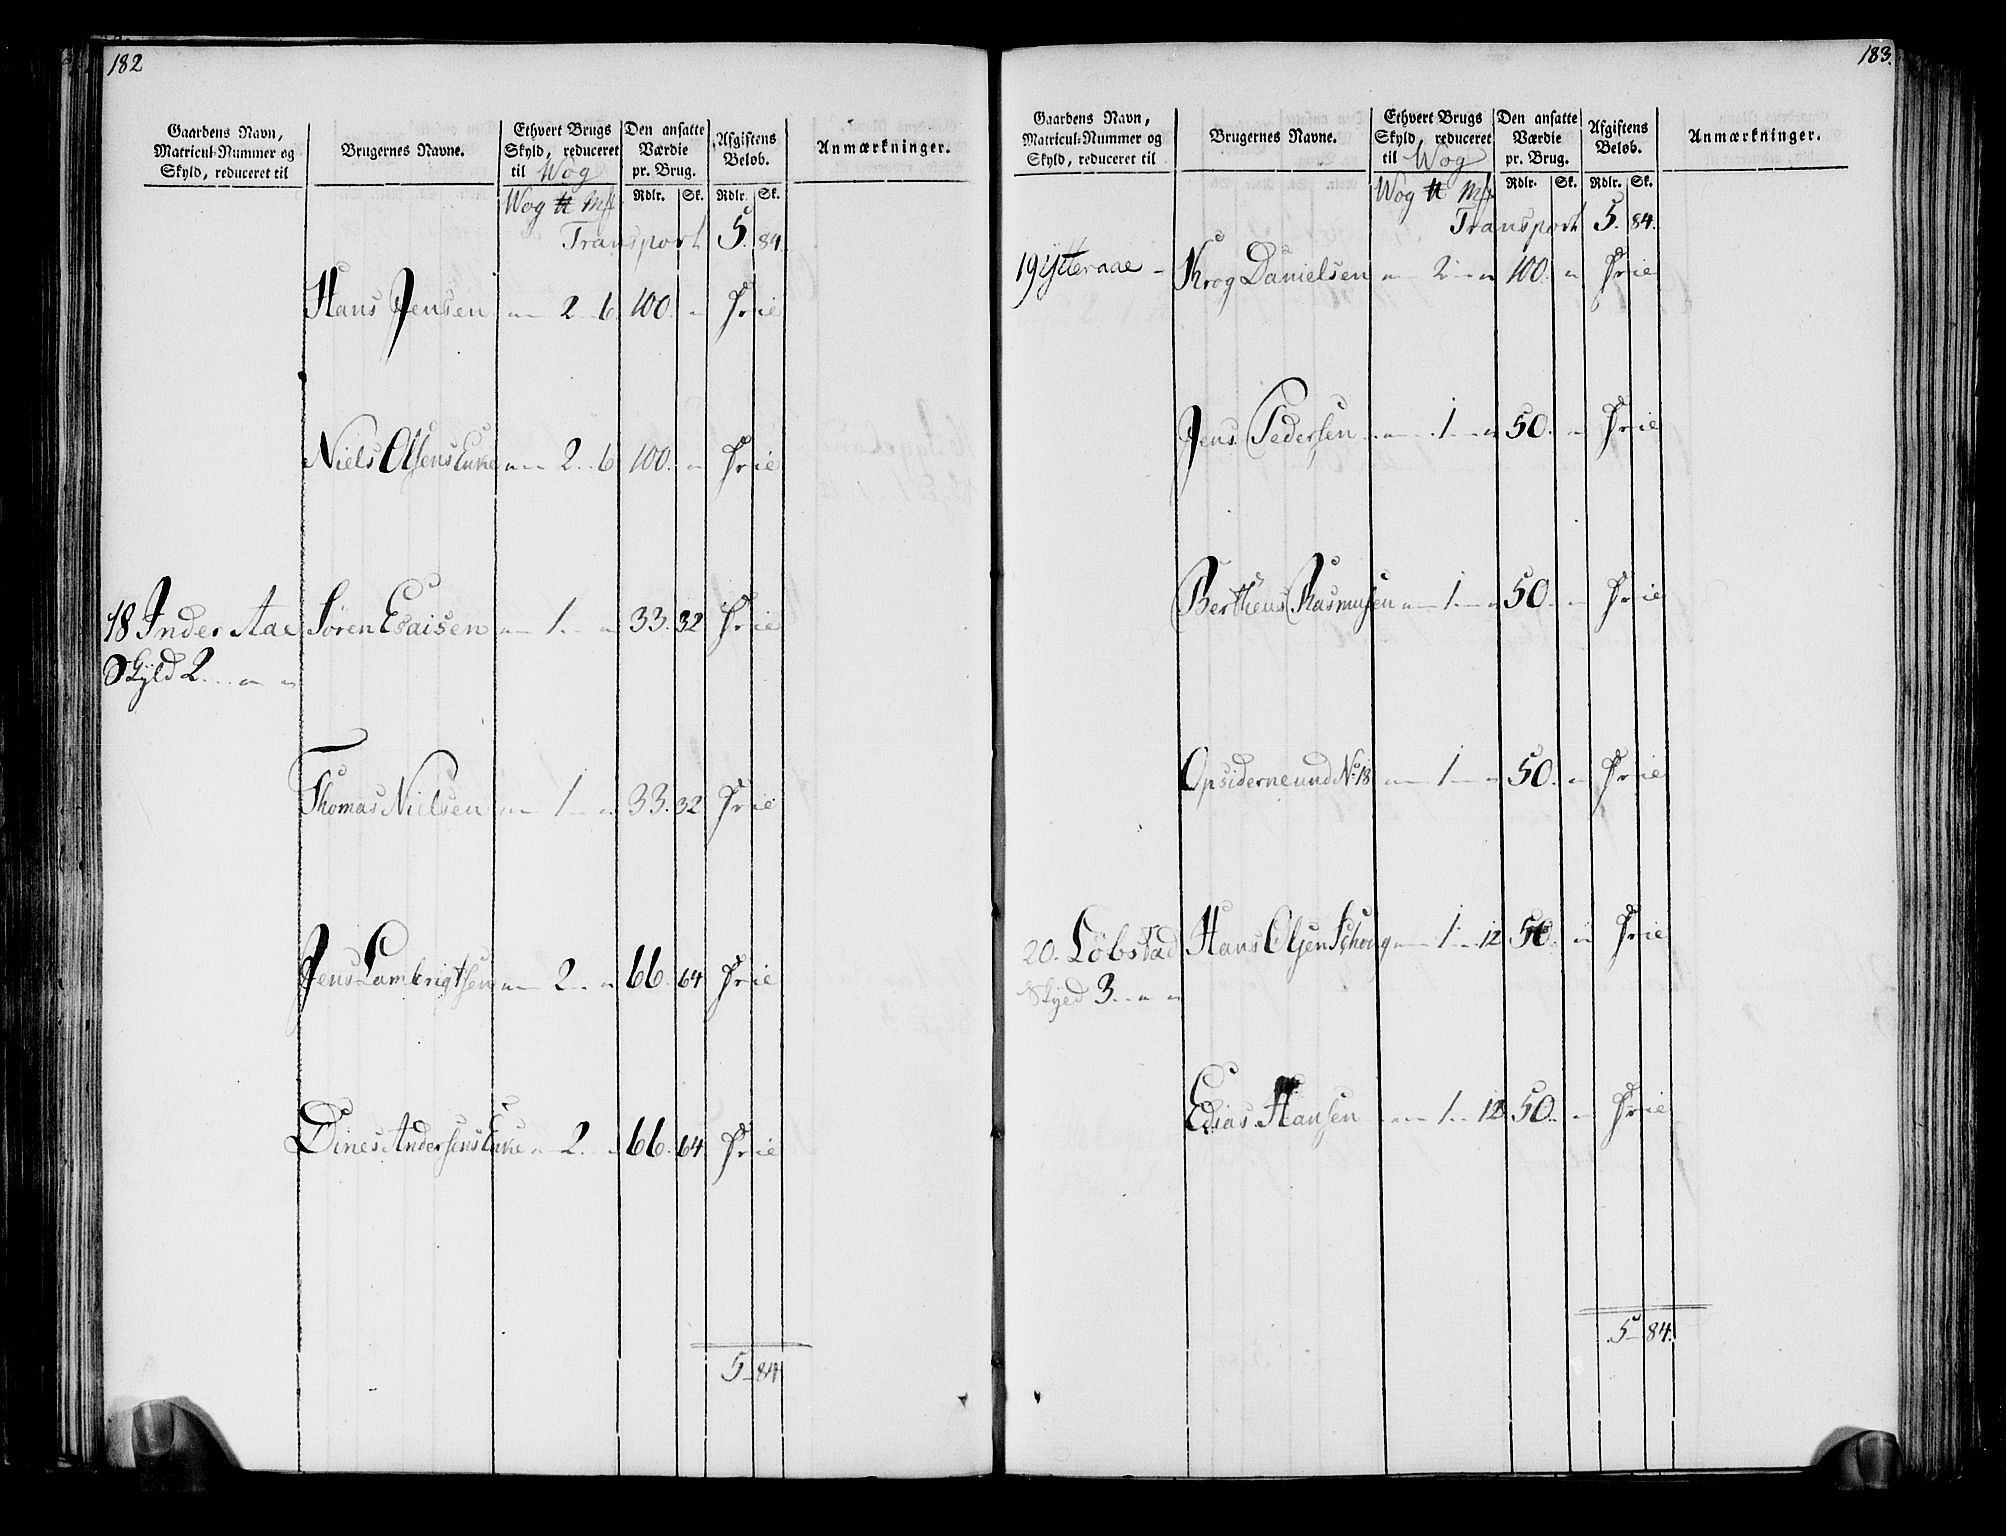 182
Gaardens Navn,
Matricul-Nummer og
Skyld, reduceret til
Brugernes Navne.
Ethvert Brugs
Skyld, reduceret
til Wog
Den ansatte
Værdie
pr. Brug.
Afgiftens
Beløb.
Anmærkninger.
Wog ℔ Mk Rdlr. Sk. Rdlr. Sk.
Transport 5. 84.
Hans Jensen „ 2 . 6 100. „ Frie
Niels Olsens Enke „ 2 . 6 100. „ Frie
18 Inder Aae Søren Esaisen „ 1. „ 33. 32 Frie
Skyld 2. „ „
Thomas Nielsen „ 1 „ 33. 32 Frie
Jens Lambrigtsen „ 2. „ 66. 64 Frie
Dines Andersens Enke „ 2. „ 66. 64 Frie
5 84
183.
Gaardens Navn,
Matricul-Nummer og
Skyld, reduceret til
Brugernes Navne.
Ethvert Brugs
Skyld, reduceret
til Wog
Den ansatte
Værdie
pr. Brug.
Afgiftens
Beløb.
Anmærkninger.
Wog ℔ Mk Rdlr. Sk. Rdlr. Sk.
Transport 5. 84.
19 Ytteraae Krog Danielsen „ 2 „ 100. „ Frie
Jens Pedersen „ 1 „ 50. „ Frie
Berthens Rasmusen „ 1 „ 50. „ Frie
Opsiderne und No 18 „ 1 „ 50. „ Frie
20. Löbstad Hans Olsen „ 1 . 12 50. „ Frie
Skyld 3. „ „
Edias Hansen „ 1 . 12 50. „ Frie
5 84.